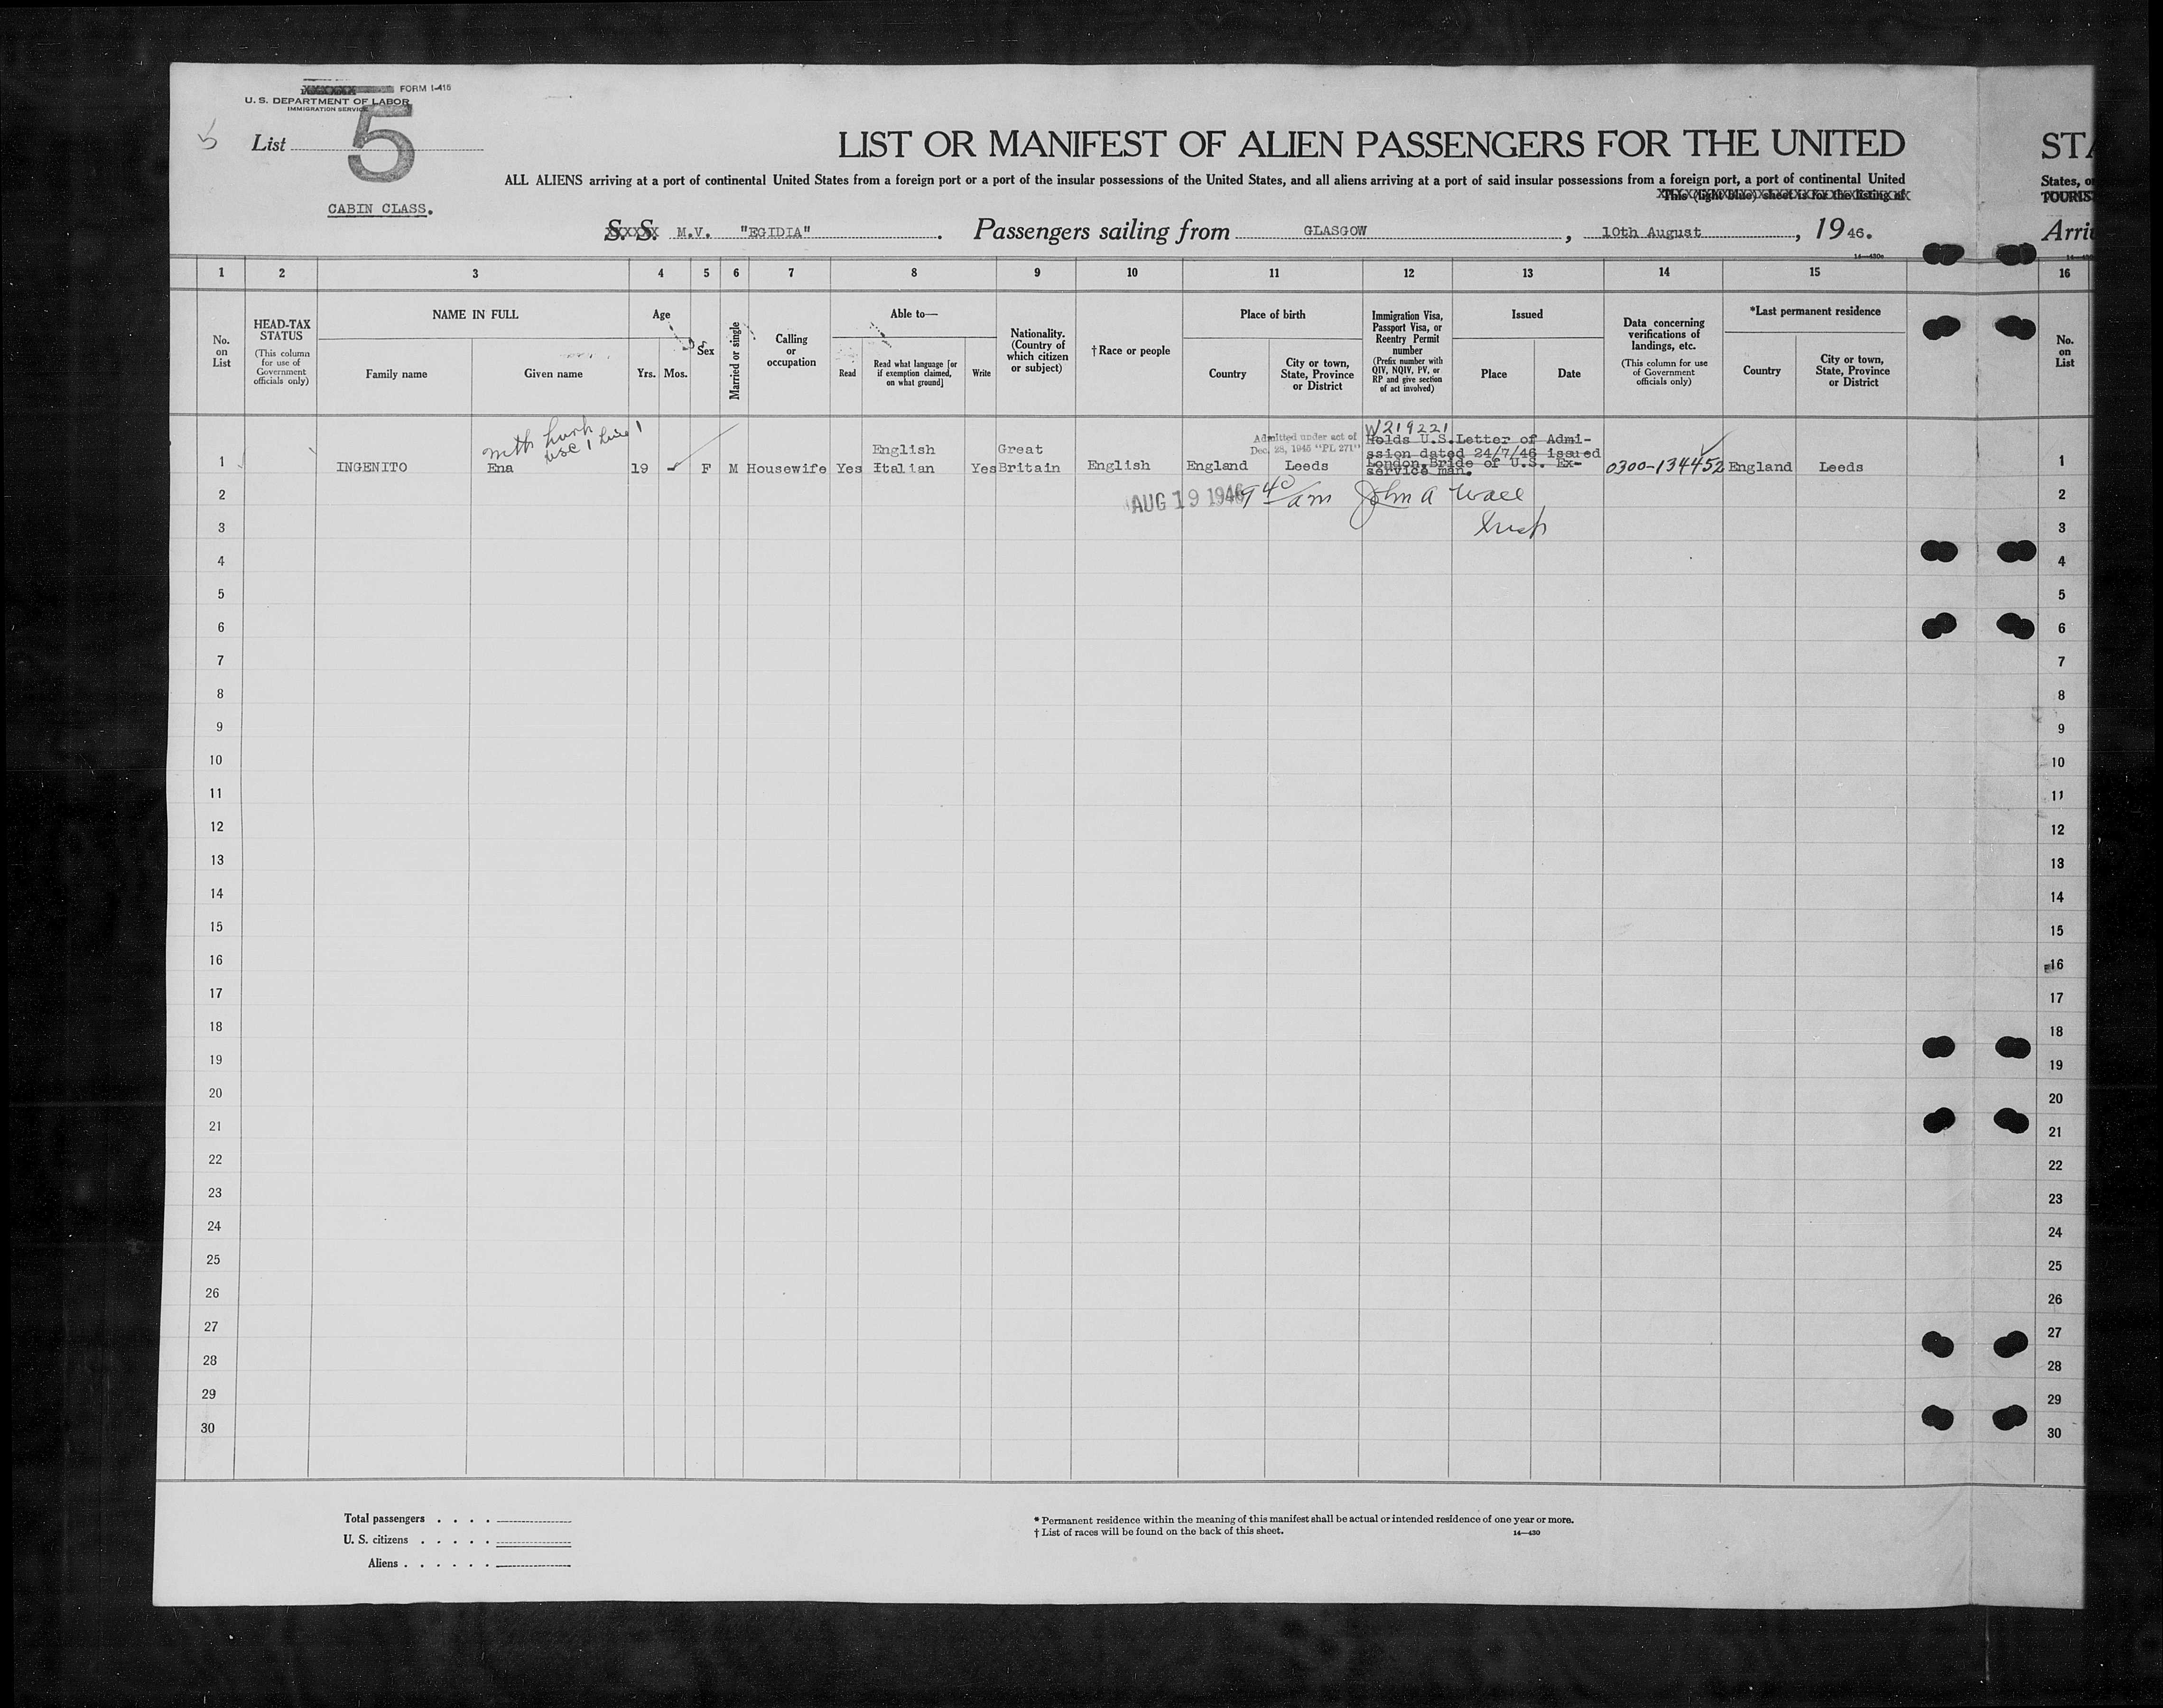 FORM I-415
U. S. DEPARTMENT OF LABOR
IMMIGRATION SERVICE
5
List 5
CABIN CLASS.
LIST OR MANIFEST OF ALIEN PASSENGERS FOR THE UNITED
ALL ALIENS arriving at a port of continental United States from a foreign port or a port of the insular possessions of the United States, and all aliens arriving at a port of said insular possessions from a foreign port, a port of continental United
This (light blue) sheet is for the listing of
S. S. M.V. "EGIDIA". Passengers sailing from GLASGOW, 10th August, 1946.
14—430a
STA
States, o
TOURIS
Arri
1 2 3 4 5 6 7 8 9 10 11 12 13 14 15 16
No. on List
HEAD-TAX STATUS
(This column for use of Government officials only)
NAME IN FULL
Family name
Given name
Age
Yrs.
Mos.
Sex
Married or single
Calling or occupation
Able to—
Read
Read what language [or if exemption claimed, on what ground]
Write
Nationality. (Country of which citizen or subject)
† Race or people
Place of birth
Country
City or town, State, Province or District
Immigration Visa, Passport Visa, or Reentry Permit number
(Prefix number with QIV, NQIV, PV, or RP and give section of act involved)
Issued
Place
Date
Data concerning verifications of landings, etc.
(This column for use of Government officials only)
*Last permanent residence
Country
City or town, State, Province or District
No. on List
with husb
usc 1 line 1
W219221
Admitted under act of
Dec. 28, 1945 "PL 271"
Holds U.S.Letter of Admi-
ssion dated 24/7/46 issued
London.Bride of U.S. Ex-
service man.
1 INGENITO Ena 19 F M Housewife Yes English Italian Yes Great Britain English England Leeds 0300-134452 England Leeds 1
2 AUG 19 1946 9 40 am John A Wall 2
3 Insp 3
4 4
5 5
6 6
7 7
8 8
9 9
10 10
11 11
12 12
13 13
14 14
15 15
16 16
17 17
18 18
19 19
20 20
21 21
22 22
23 23
24 24
25 25
26 26
27 27
28 28
29 29
30 30
Total passengers . . . .
U. S. citizens . . . . .
Aliens . . . . . .
* Permanent residence within the meaning of this manifest shall be actual or intended residence of one year or more.
† List of races will be found on the back of this sheet.
14—430